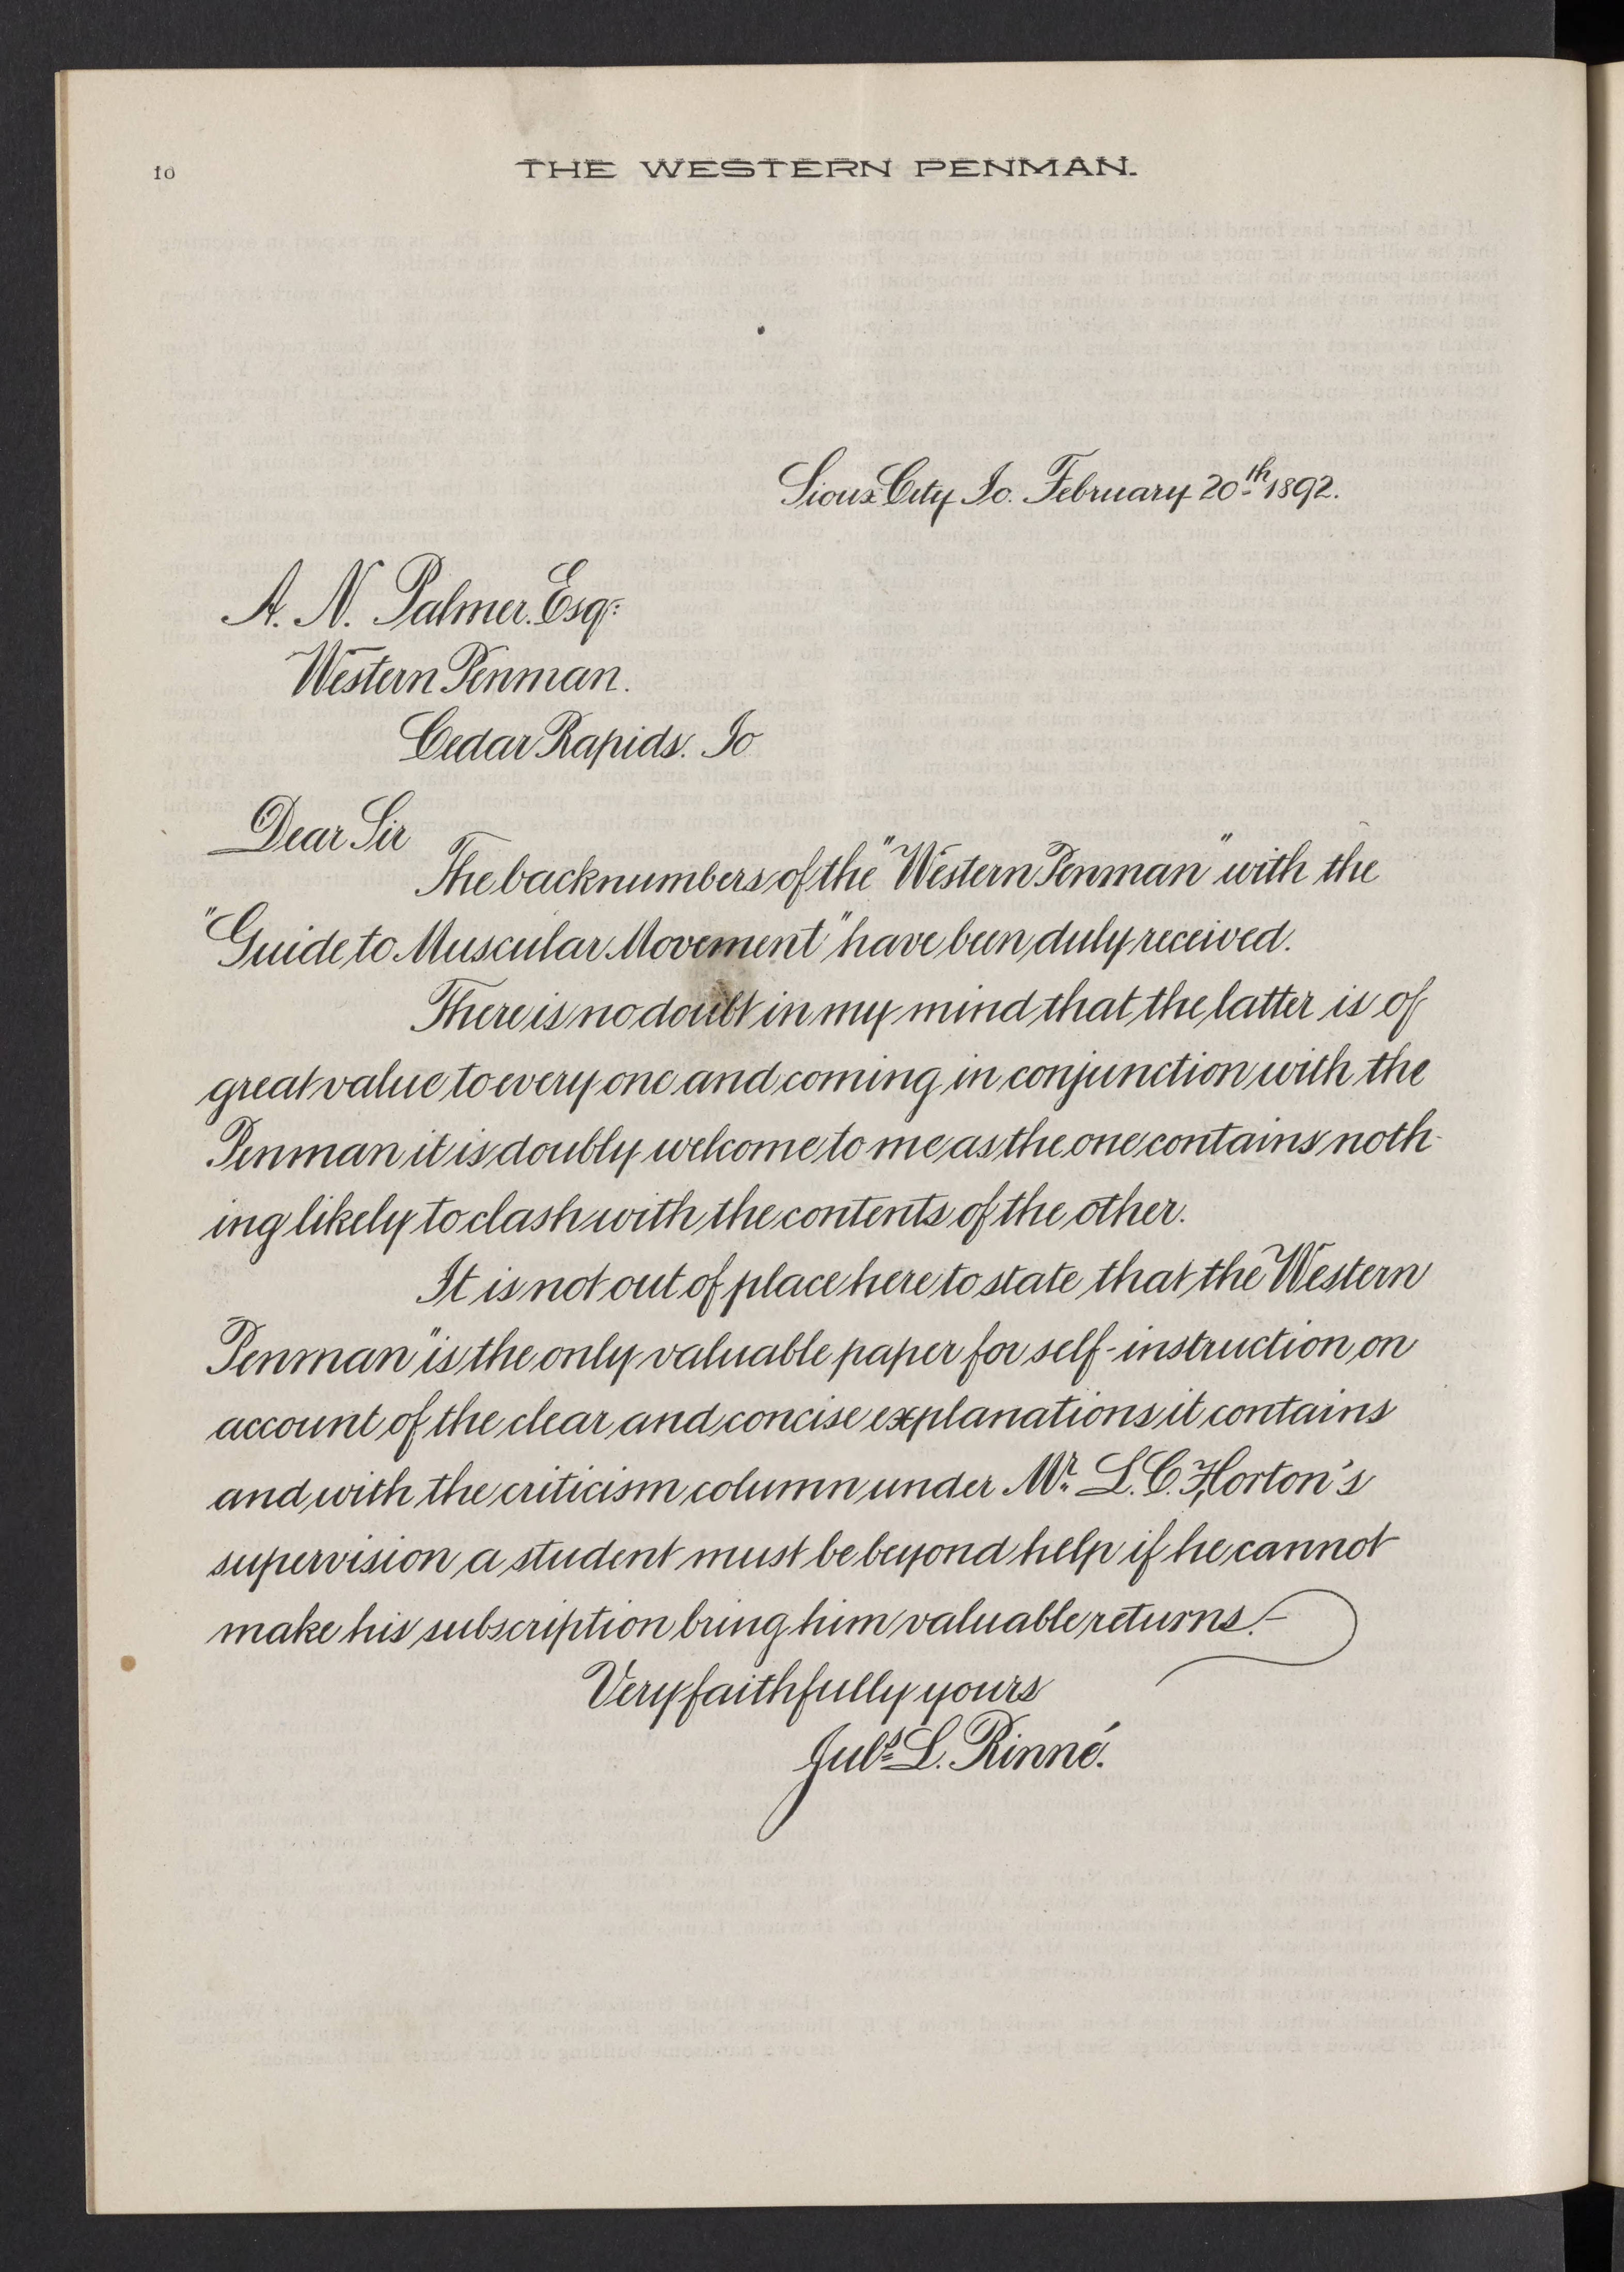 10
THE WESTERN PENMAN.
Sioux City Io. February 20th 1892.
A. N. Palmer. Esq:
Western Penman.
Cedar Rapids. Io
Dear Sir
The back numbers of the "Western Penman" with the
"Guide to Muscular Movement" have been duly received.
There is no doubt in my mind that the latter is of
great value to every one and coming in conjunction with the
Penman it is doubly welcome to me as the one contains noth-
ing likely to clash with the contents of the other.
It is not out of place here to state that the "Western
Penman" is the only valuable paper for self-instruction on
account of the clear and concise explanations it contains
and with the criticism column under Mr. L. C. Horton's
supervision a student must be beyond help if he cannot
make his subscription bring him valuable returns.-
Very faithfully yours
Juls. L. Rinné.